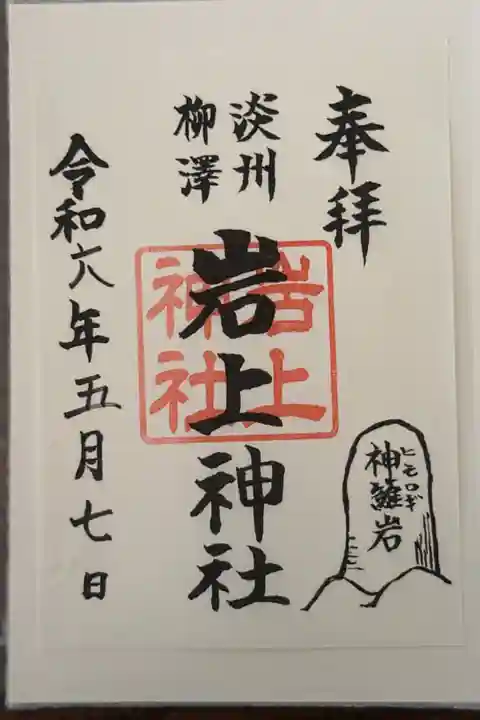 奉拝
淡州
柳澤
岩上神社
岩上
神社
令和六年五月七日
ヒモロギ
神籬岩